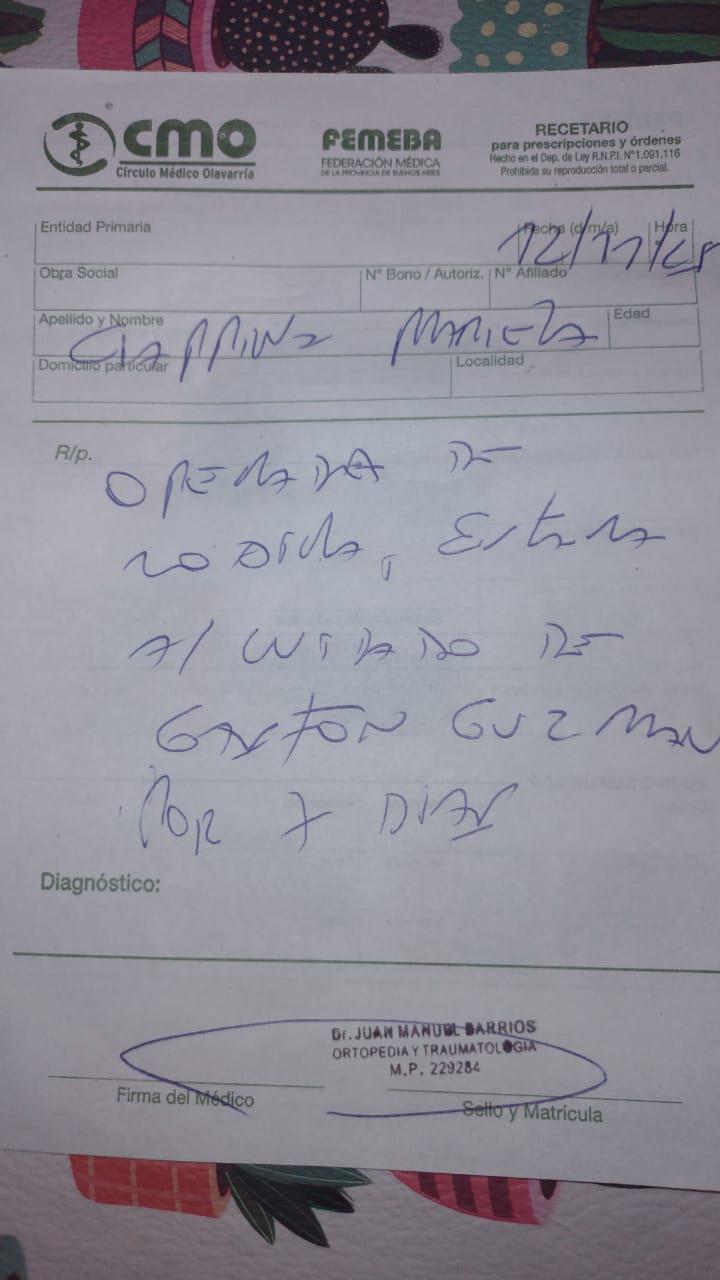 CMO
Círculo Médico Olavarría
FEMEBA
FEDERACIÓN MÉDICA
DE LA PROVINCIA DE BUENOS AIRES
RECETARIO
para prescripciones y órdenes
Hecho en el Dep. de Ley R.N.P.I. Nº1.091.116
Prohibida su reproducción total o parcial.
Entidad Primaria
Fecha (d/m/a) Hora
12/11/25
Obra Social Nº Bono / Autoriz. Nº Afiliado
Apellido y Nombre Edad
MARIELA
Domicilio particular Localidad
R/p.
OPERADA DE
RODILLA, ESTARA
AL CUIDADO DE
GASTON GUZMAN
POR 7 DIAS
Diagnóstico:
Dr. JUAN MANUEL BARRIOS
ORTOPEDIA Y TRAUMATOLOGIA
M.P. 229284
Firma del Médico Sello y Matrícula